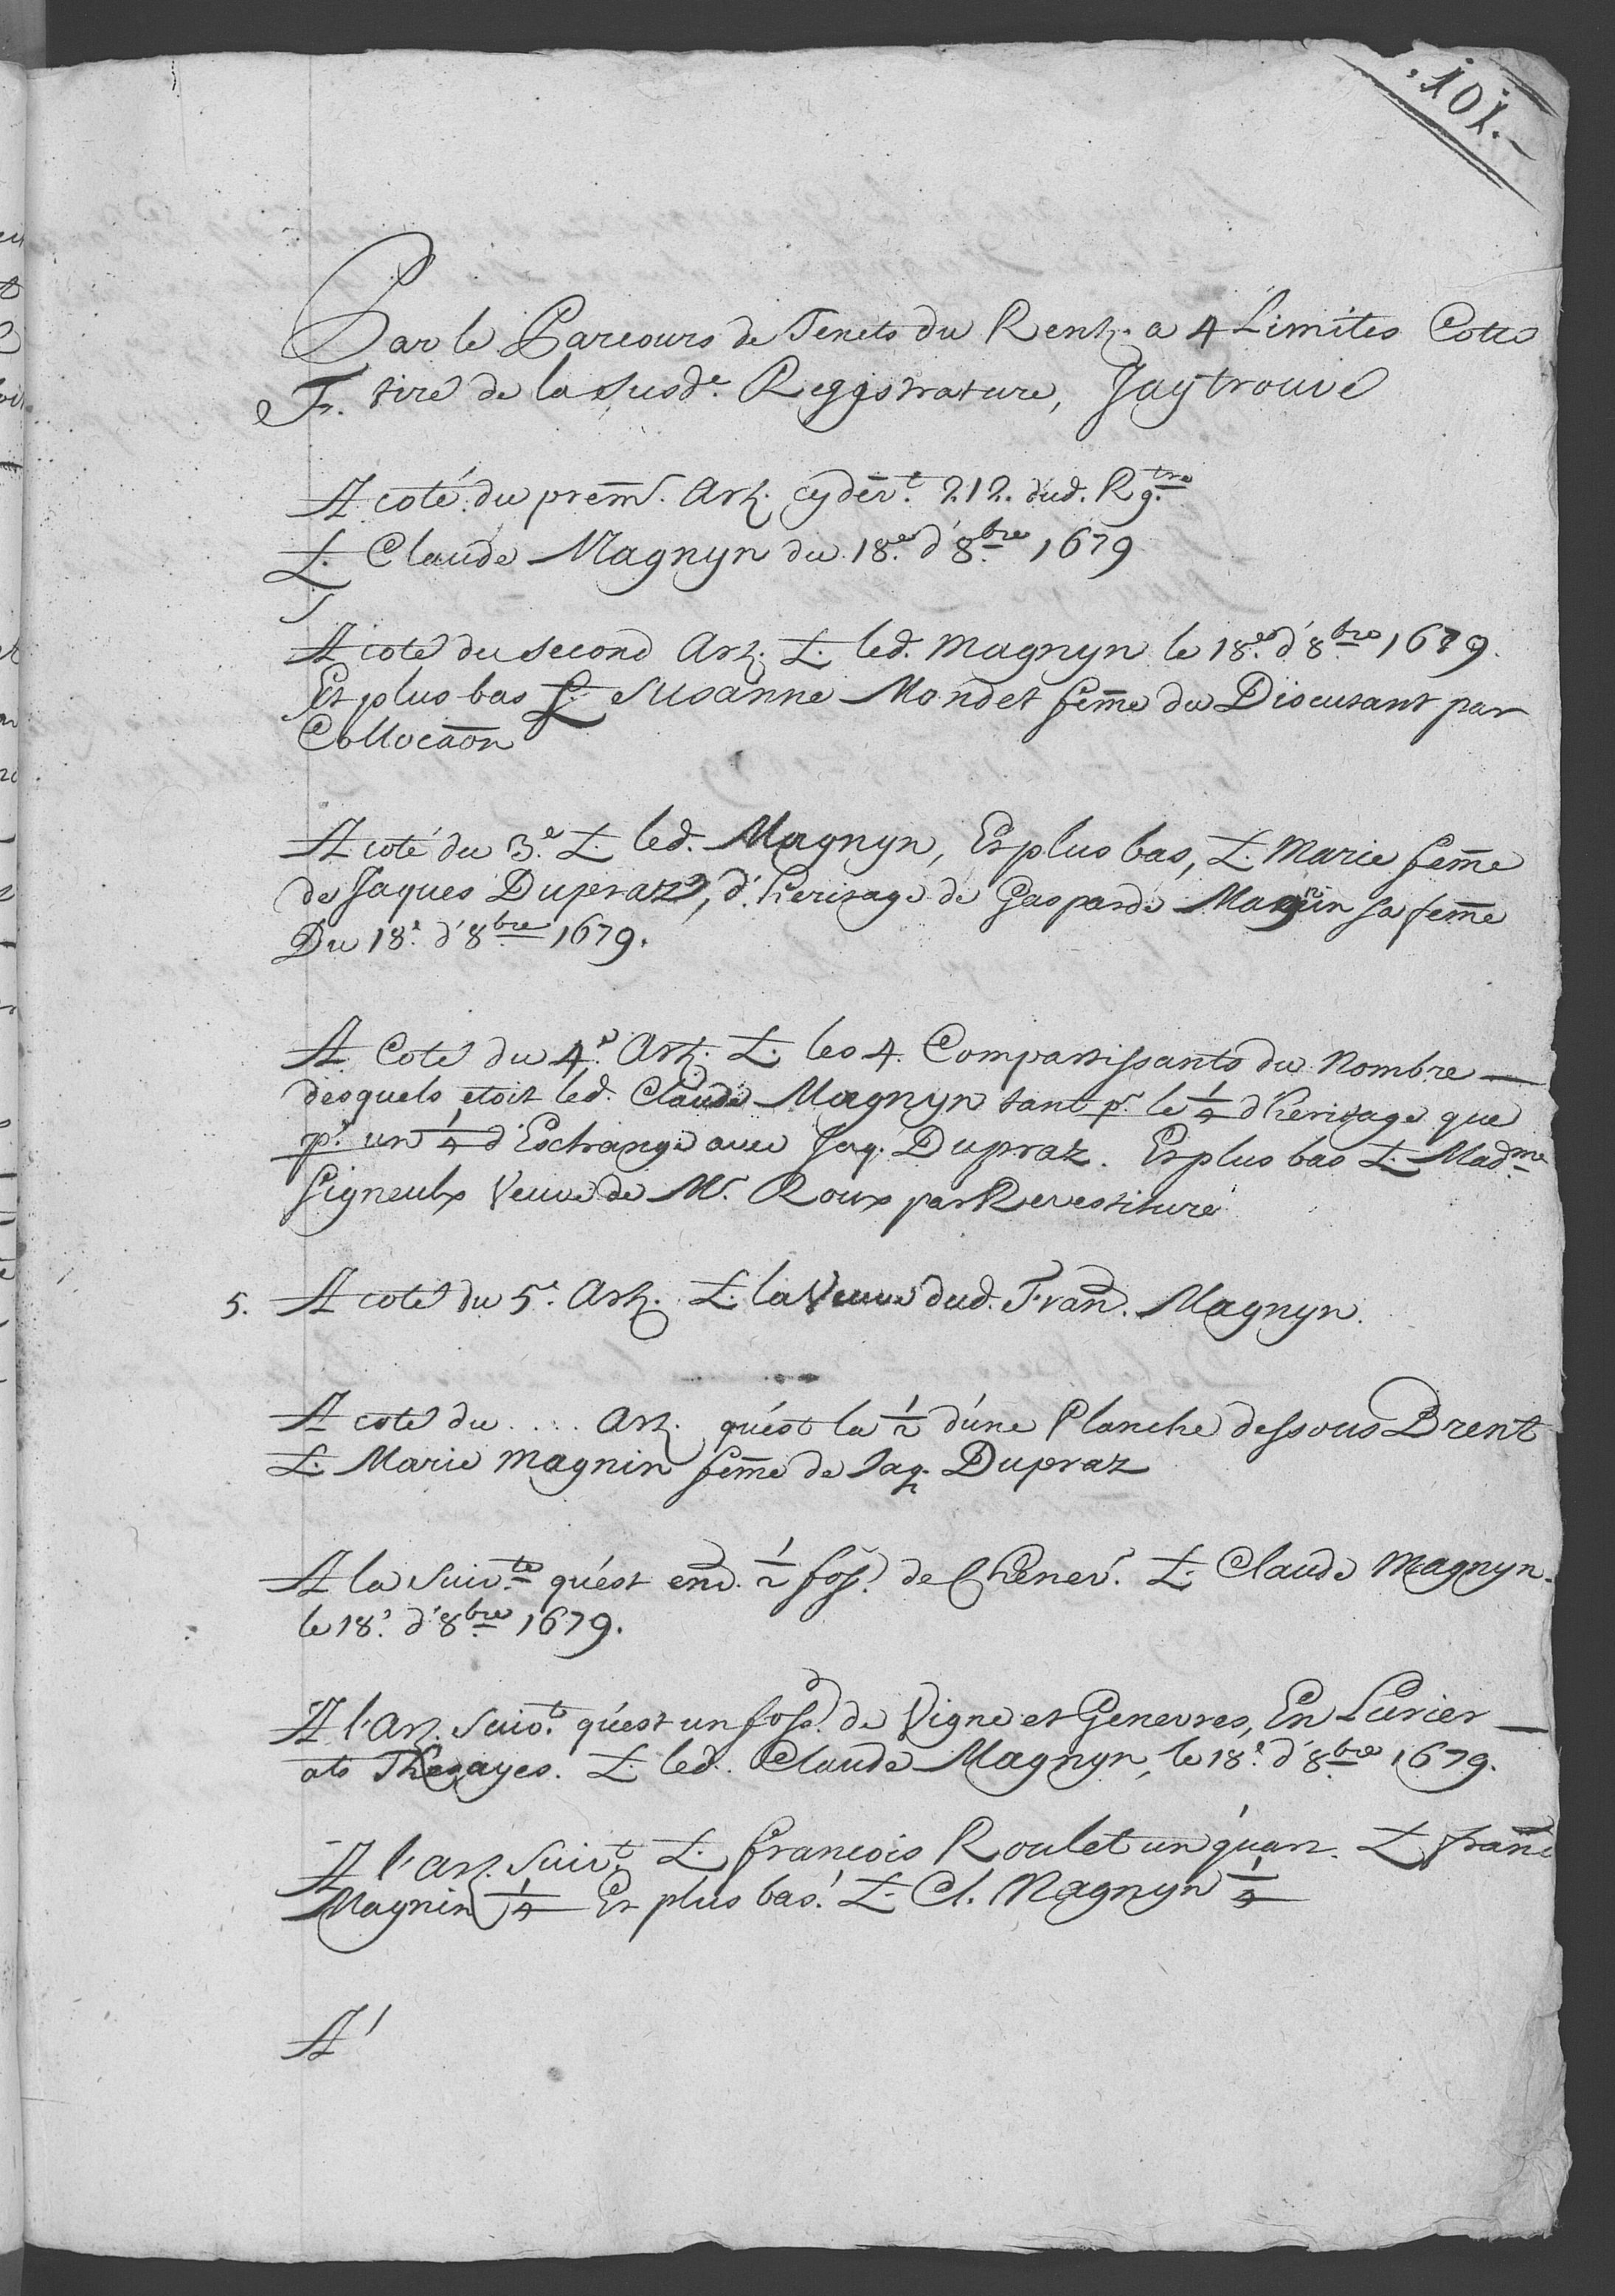 .101.
Par le Parcours de Tenets du Rent. a 4 Limites Cotté
F. tiré de la susd.e Reggistrature, Jaÿ trouvé
A coté du prem.r Art. cÿ der.t 212. dud. Rg.tre
T. Claude Magnÿn du 18.e d'8.bre 1679
A coté du second Art. T. led. Magnÿn le 18.e d'8.bre 1679.
Et plus bas T. Susanne Mondet fem̄e du Discutant par
Collocaōn
A coté du 3.e T. led. Magnÿn, Et plus bas, T. Marie fem̄e
de Jaques Dupraz, d'heritage de Gasparde Magnin sa fem̄e
Du 18.e d'8.bre 1679.
A Coté du 4.e Art. T. les 4. Compartissants du Nombre
desquels etoit led. Claude Magnÿn tant p.r le 1/4 d'heritage que
p.r un 1/4 d'Eschange avec Jaq. Dupraz. Et plus bas T. Mad.me
Signeulx Veuve de Mr. Roux par Revestiture
5. A coté du 5.e Art. T. la Veuve dud. Fran. Magnÿn.
A coté du .... Art. qu'est la 1/2 d'une Planche dessous Brent
T. Marie Magnin fem̄e de Jaq. Dupraz
A la suiv.te qu'est env. 1/2 fos. de Chenev. T. Claude Magnÿn.
le 18.e d'8.bre 1679.
A l'Art. Suiv.t qu'est un foss. de Vigne et Genevres, En
als T. led. Claude Magnÿn, le 18.e d'8.bre 1679.
A l'art. Suiv.t T. François Roulet un quart. T. fran
Magnin 1/4 Et plus bas. T. Cl. Magnÿn 1/4
A'